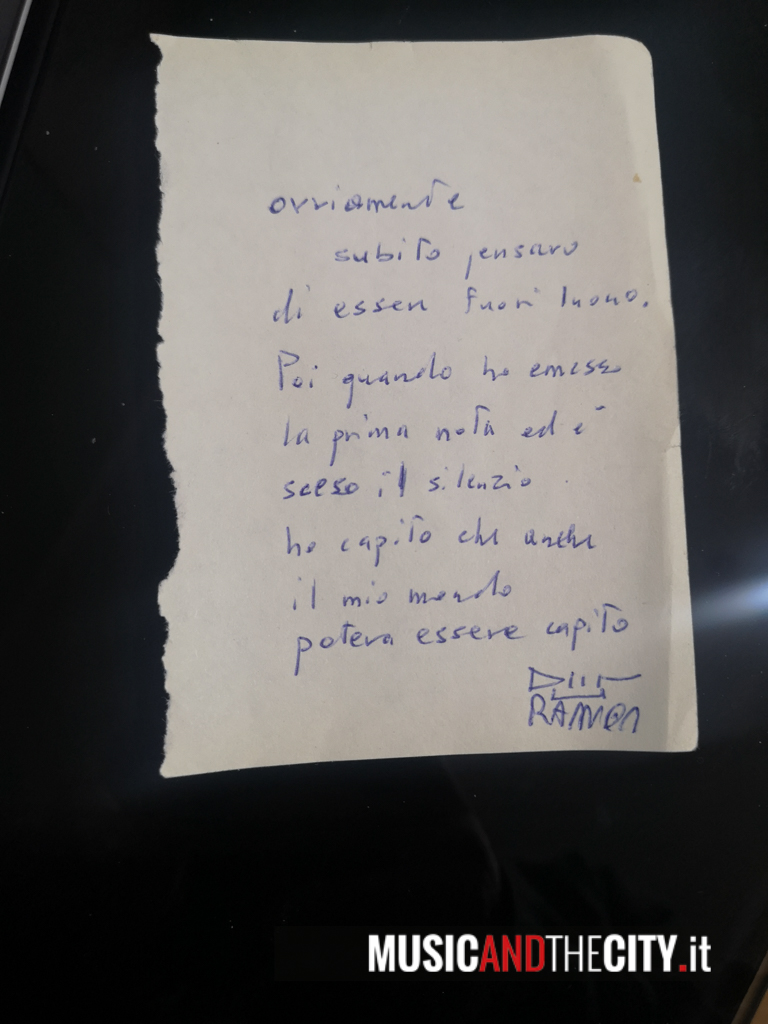 ovviamente
subito pensavo
di essere fuori luogo.
Poi quando ho emesso
la prima nota ed è
sceso il silenzio
ho capito che anche
il mio mondo
poteva essere capito
RAMON
MUSICANDTHECITY.it